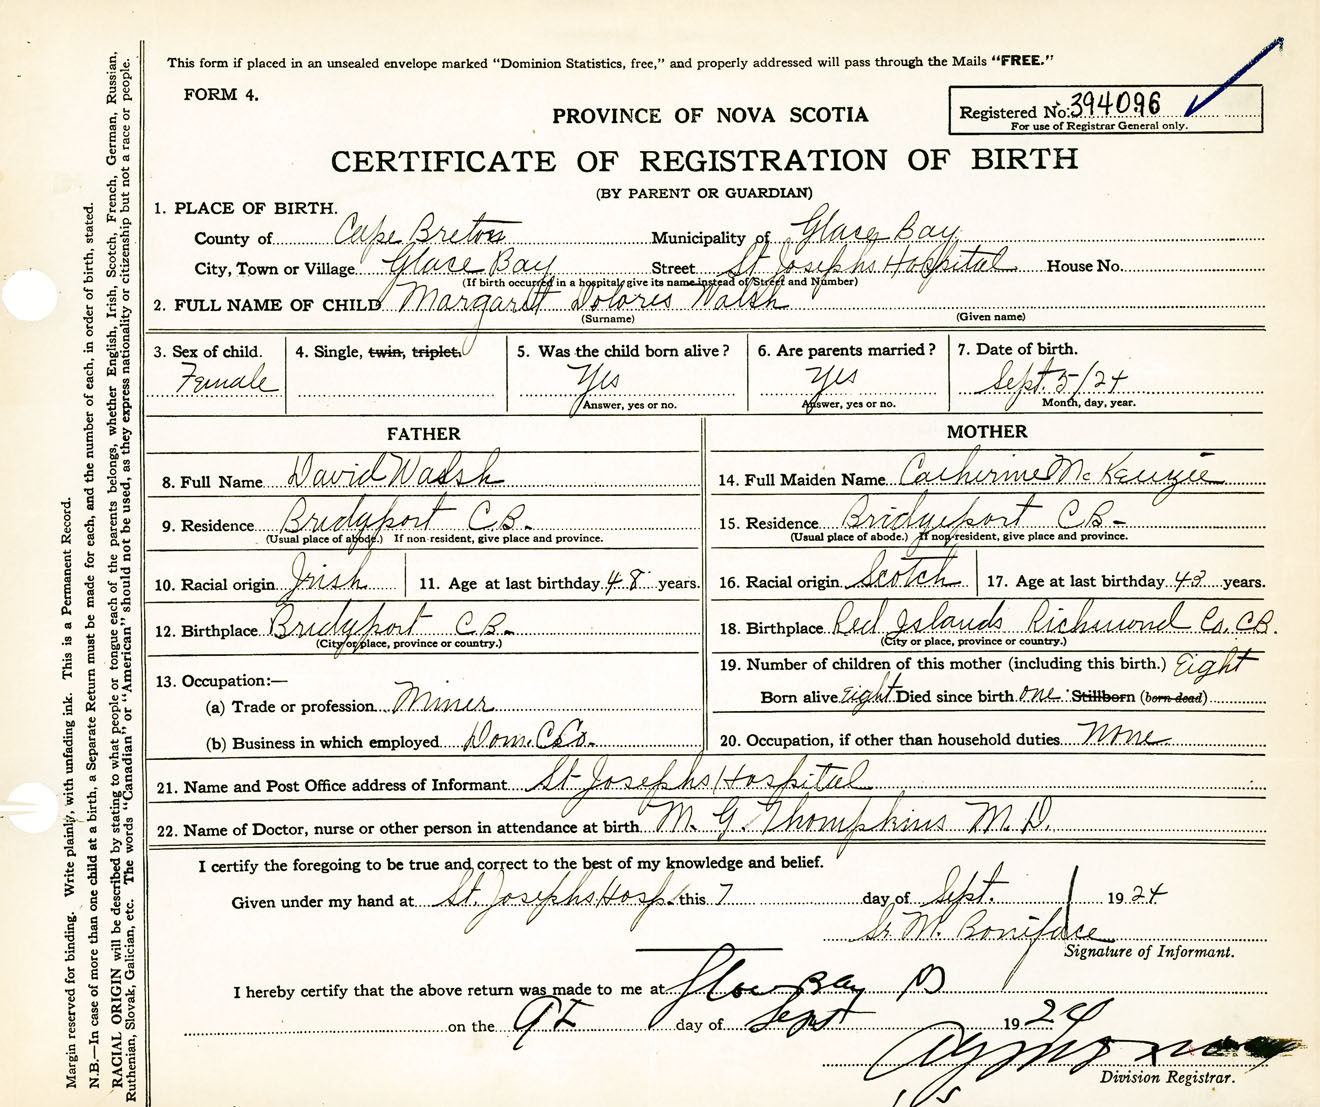 This form if placed in an unsealed envelope marked "Dominion Statistics, free," and properly addressed will pass through the Mails "FREE."
FORM 4.
PROVINCE OF NOVA SCOTIA
Registered No. 394096
For use of Registrar General only.
CERTIFICATE OF REGISTRATION OF BIRTH
(BY PARENT OR GUARDIAN)
1. PLACE OF BIRTH.
County of Cape Breton Municipality of Glace Bay
City, Town or Village Glace Bay Street St Josephs Hospital House No.
(If birth occurred in a hospital, give its name instead of Street and Number)
2. FULL NAME OF CHILD Margaret Dolores Walsh
(Surname) (Given name)
3. Sex of child. 4. Single, twin, triplet. 5. Was the child born alive? 6. Are parents married? 7. Date of birth.
Female Yes Yes Sept. 5/24
Answer, yes or no. Answer, yes or no. Month, day, year.
FATHER
8. Full Name David Walsh
9. Residence Bridgeport C.B.
(Usual place of abode.) If non-resident, give place and province.
10. Racial origin Irish 11. Age at last birthday 48 years.
12. Birthplace Bridgeport C.B.
(City or place, province or country.)
13. Occupation:—
(a) Trade or profession Miner
(b) Business in which employed Dom. C. Co.
MOTHER
14. Full Maiden Name Catherine McKenzie
15. Residence Bridgeport C.B.
(Usual place of abode.) If non-resident, give place and province.
16. Racial origin Scotch 17. Age at last birthday 43 years.
18. Birthplace Red Islands Richmond Co. C.B.
(City or place, province or country.)
19. Number of children of this mother (including this birth.) Eight
Born alive Eight Died since birth one Stillborn (born dead)
20. Occupation, if other than household duties None
21. Name and Post Office address of Informant St Josephs Hospital
22. Name of Doctor, nurse or other person in attendance at birth M. G. Thompkins M.D.
I certify the foregoing to be true and correct to the best of my knowledge and belief.
Given under my hand at St. Josephs Hosp. this 7 day of Sept. 1924
Sr. M. Boniface
Signature of Informant.
I hereby certify that the above return was made to me at Glace Bay
on the 9 day of Sept 1924
Division Registrar.
Margin reserved for binding. Write plainly, with unfading ink. This is a Permanent Record.
N.B.—In case of more than one child at a birth, a Separate Return must be made for each, and the number of each, in order of birth, stated.
RACIAL ORIGIN will be described by stating to what people or tongue each of the parents belongs, whether English, Irish, Scotch, French, German, Russian,
Ruthenian, Slovak, Galician, etc. The words "Canadian" or "American" should not be used, as they express nationality or citizenship but not a race or people.